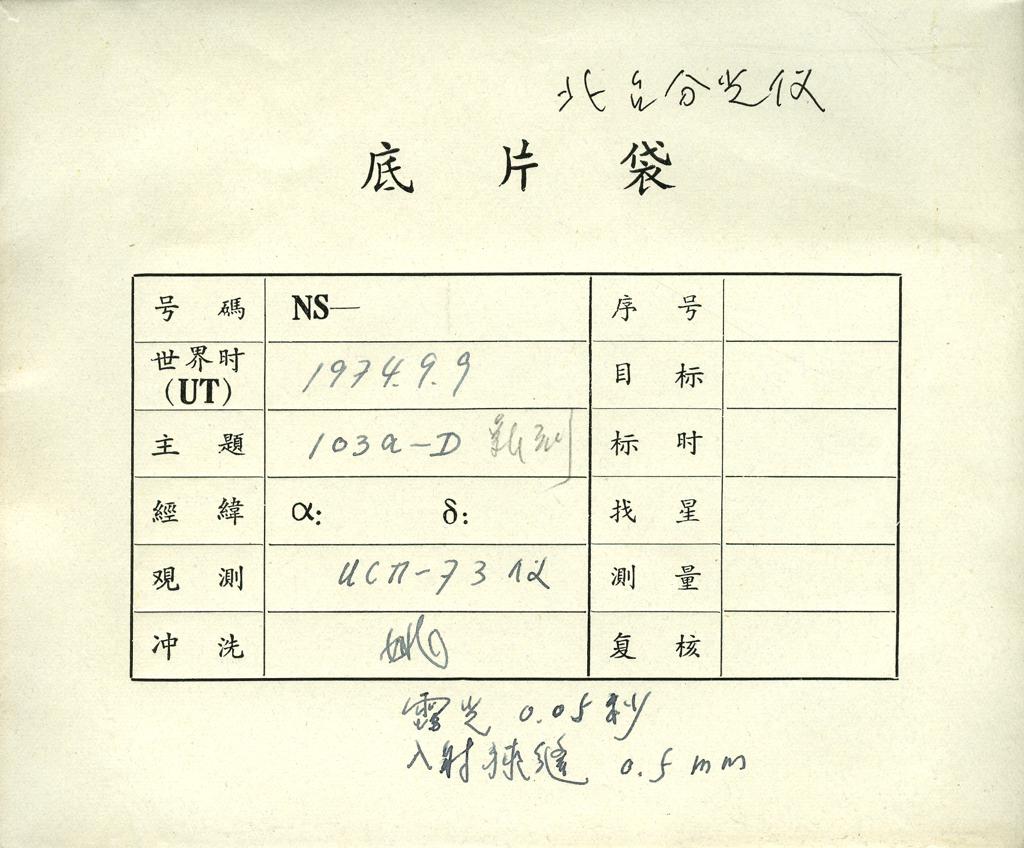 北台分光仪
底片袋
号碼 NS— 序号
世界时(UT) 1974.9.9 目标
主題 103a-D 标时
經緯 α: δ: 找星
观測 UСП-73仪 測量
冲洗 姚 复核
露光 0.05秒
入射狭縫 0.5mm